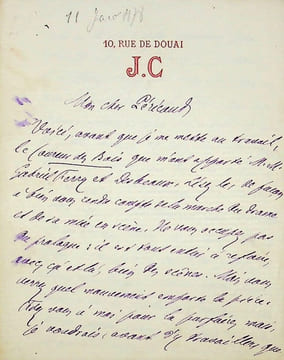 11 Janv 1878
10, RUE DE DOUAI
J.C
Mon cher Péricaud
Voici, avant que je me mette au travail,
le Coureur des Bois que m'ont apporté M. M.
Gabriel Ferry et Lisez les, de façon
à bien vous rendre compte de la marche du drame
et de sa mise en scène. Ne vous occupez pas
du prologue : il est tout entier à refaire,
avec, çà et là, bien des scènes. Mais vous
verrez quel mouvement emporte la pièce.
à moi pour la parfaire, mais
je voudrais, avant d'y travailler, que